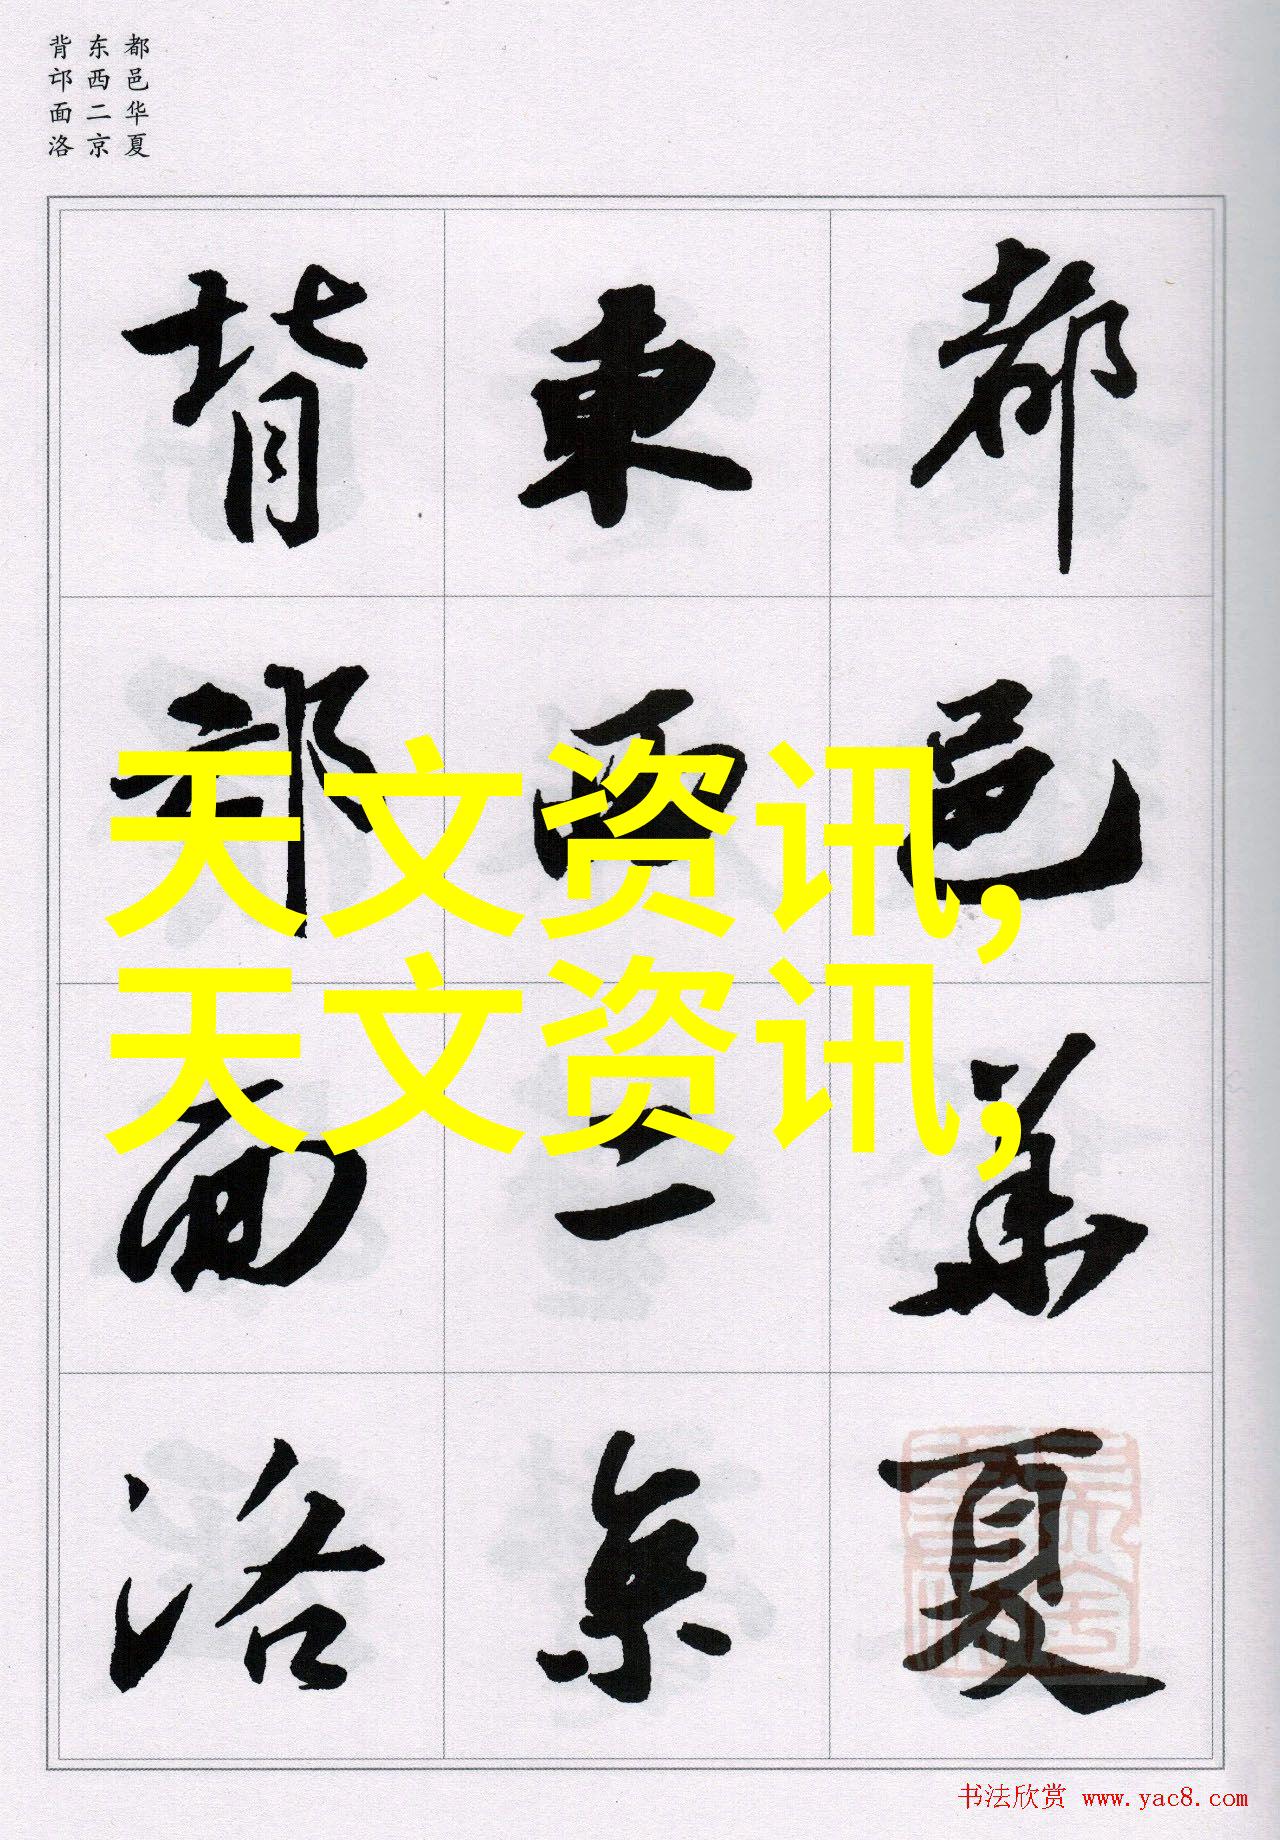 都邑华夏
东西二京
背邙面洛
都邑華夏
東西二京
背邙面洛
天文资讯,
天文资讯,
书法欣赏 www.yac8.com